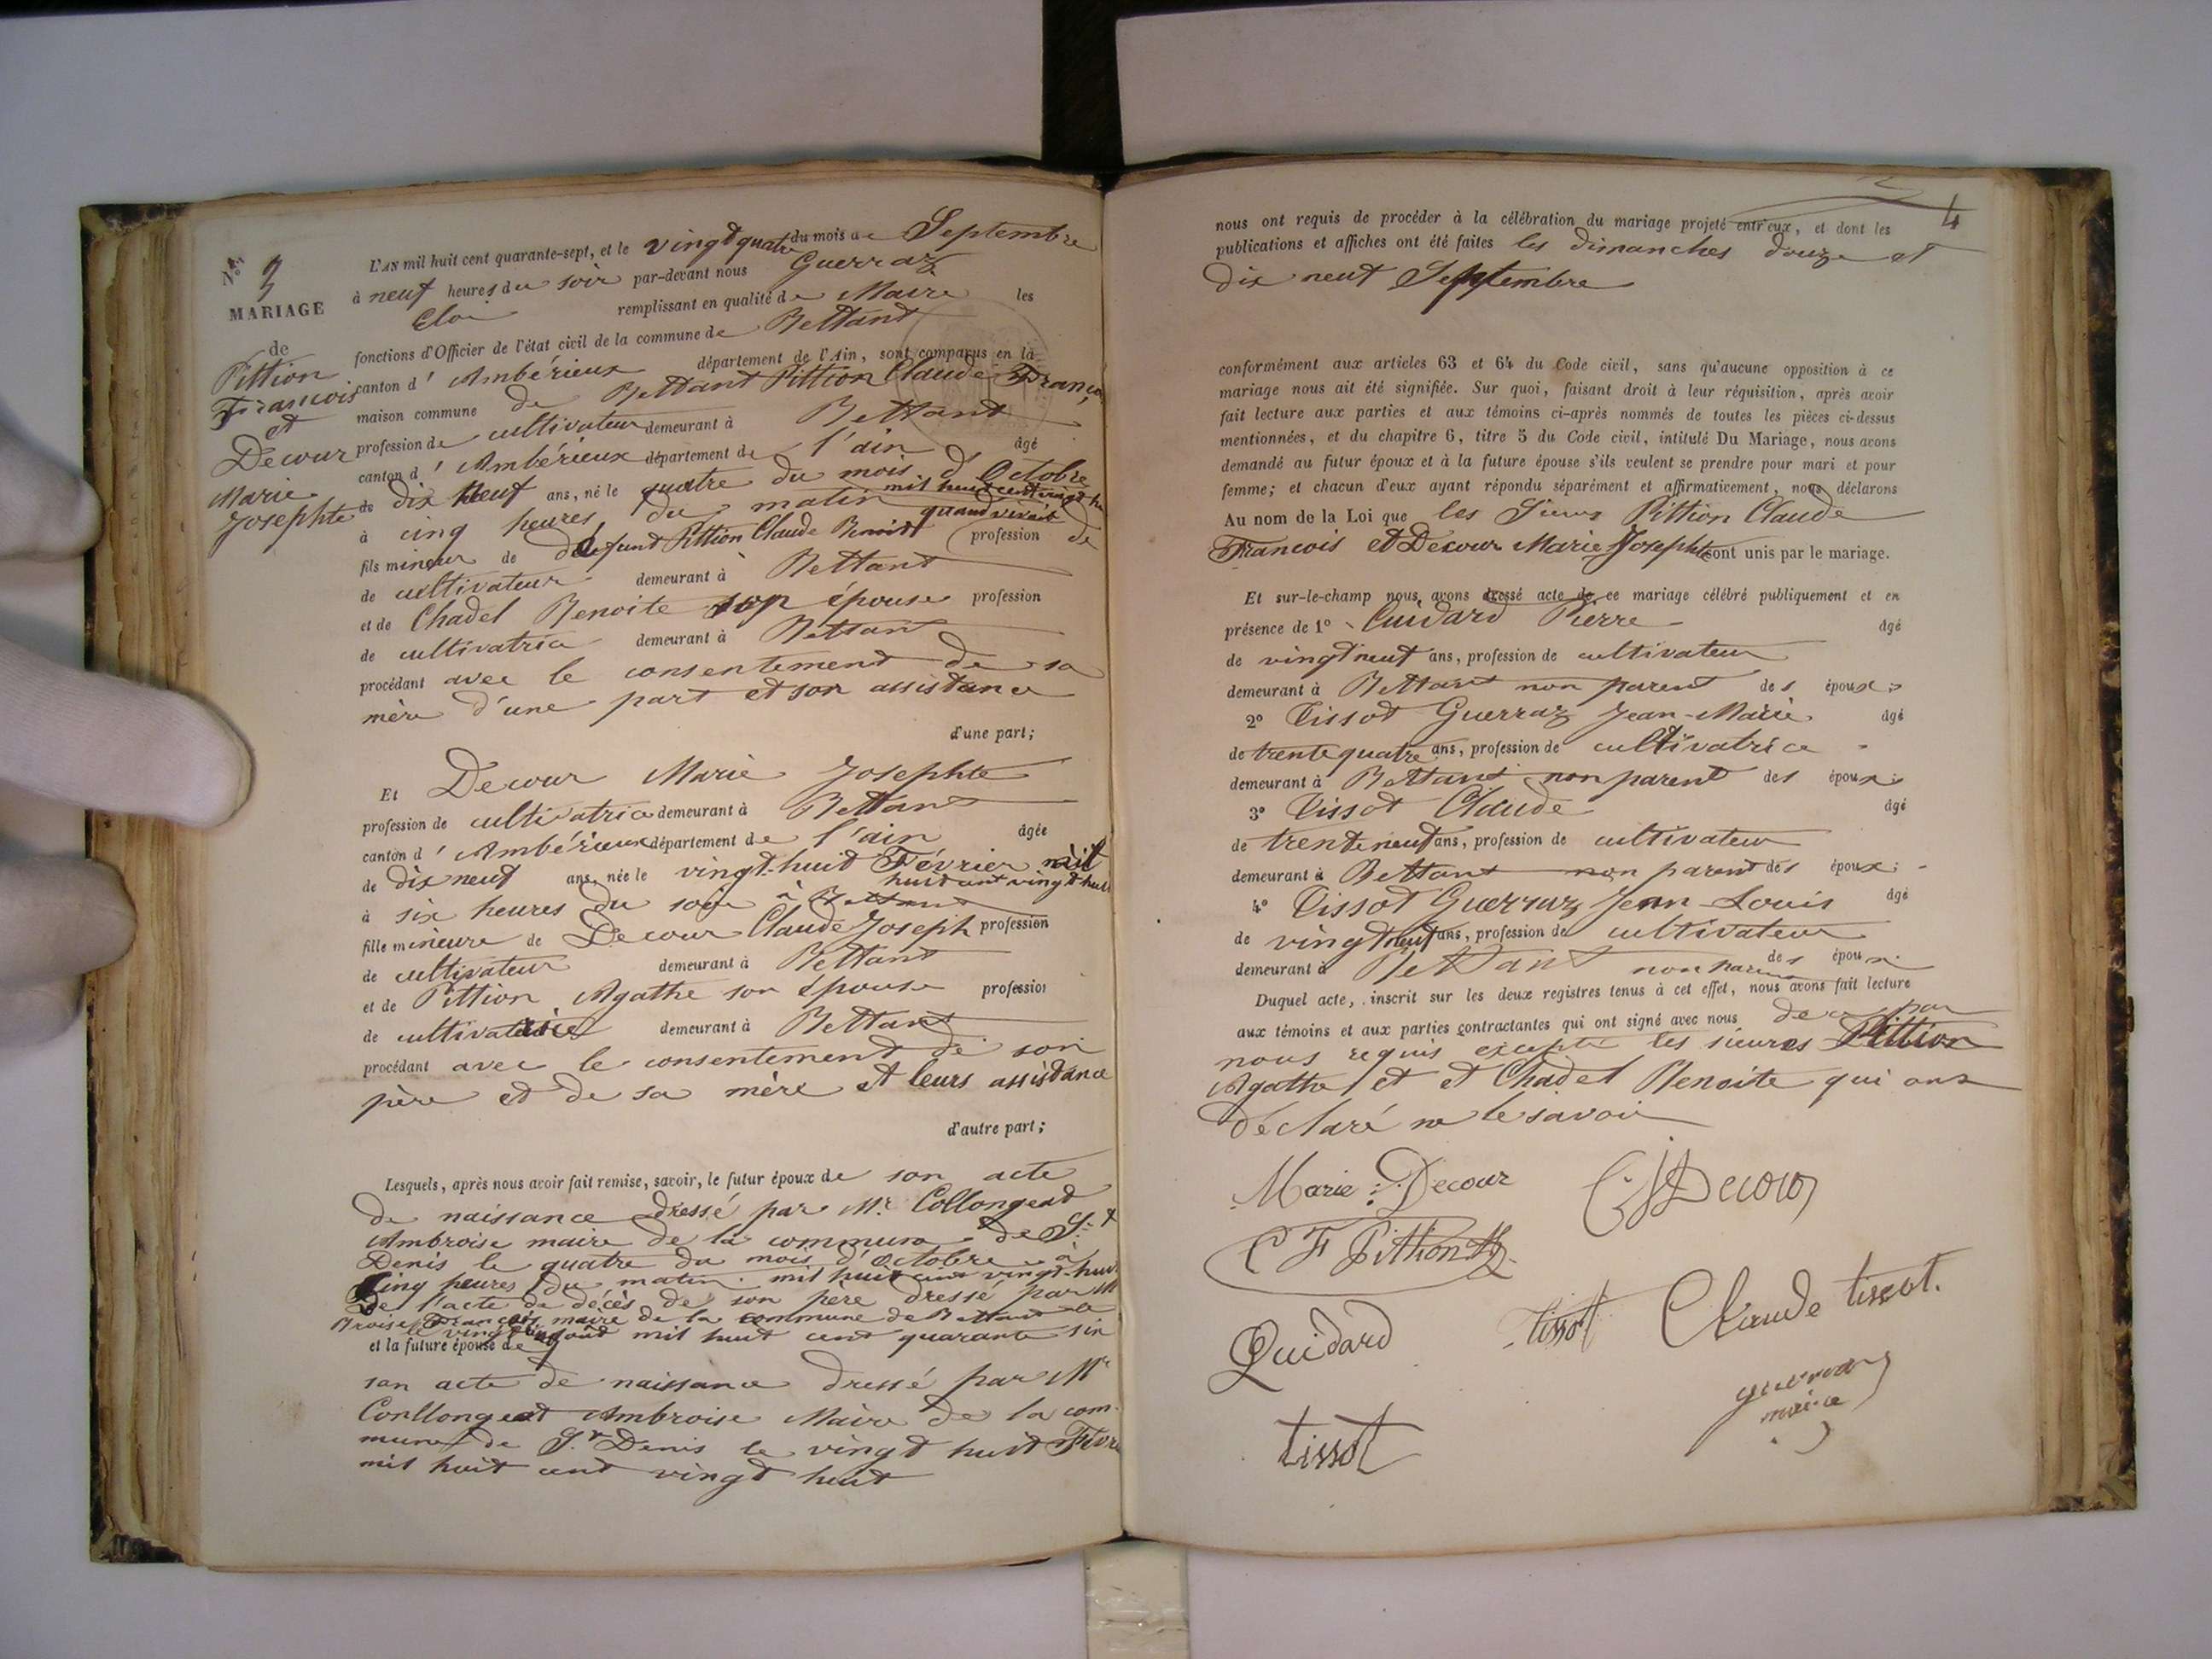 No 3
MARIAGE
de
Pittion
François
et
Decour
Marie
Josephte
L'AN mil huit cent quarante-sept, et le vingt quatre du mois de Septembre
à neuf heures du soir par-devant nous Guerraz
Eloi remplissant en qualité de Maire les
fonctions d'Officier de l'état civil de la commune de Bettant
canton d'Ambérieux département de l'Ain, sont comparus en la
maison commune de Bettant Pittion Claude François
profession de cultivateur demeurant à Bettant
canton d'Ambérieux département de l'ain âgé
de dix neuf ans, né le quatre du mois d'Octobre
mil huit cent vingt hu
à cinq heures du matin quand vivait
fils mineur de défunt Pittion Claude Benoit profession de
de cultivateur demeurant à Bettant
et de Chadel Benoite son épouse profession
de cultivatrice demeurant à Bettant
procédant avec le consentement de sa
mère d'une part et son assistance
d'une part;
Et Decour Marie Josephte
profession de cultivatrice demeurant à Bettant
canton d'Ambérieux département de l'ain âgée
de dix neuf ans, née le vingt-huit Février mil
huit cent vingt huit
à six heures du soir à Bettant
fille mineure de Decour Claude Joseph profession
de cultivateur demeurant à Bettant
et de Pittion Agathe son épouse profession
de cultivatrice demeurant à Bettant
procédant avec le consentement de son
père et de sa mère et leurs assistance
d'autre part;
Lesquels, après nous avoir fait remise, savoir, le futur époux de son acte
de naissance dressé par Mr Collongeat
Ambroise maire de la commune de St
Denis le quatre du mois d'Octobre à
Cinq heures du matin mil huit cent vingt-huit
de l'acte de décès de son père dressé par M
Broise François maire de la commune de Bettant
le vingt août mil huit cent quarante six
et la future épouse de
son acte de naissance dressé par Mr
Conllongeat Ambroise Maire de la com-
mune de St Denis le vingt huit Fevr
mil huit cent vingt huit
4
nous ont requis de procéder à la célébration du mariage projeté entr'eux, et dont les
publications et affiches ont été faites les dimanches douze et
dix neuf Septembre
conformément aux articles 63 et 64 du Code civil, sans qu'aucune opposition à ce
mariage nous ait été signifiée. Sur quoi, faisant droit à leur réquisition, après avoir
fait lecture aux parties et aux témoins ci-après nommés de toutes les pièces ci-dessus
mentionnées, et du chapitre 6, titre 5 du Code civil, intitulé Du Mariage, nous avons
demandé au futur époux et à la future épouse s'ils veulent se prendre pour mari et pour
femme; et chacun d'eux ayant répondu séparément et affirmativement, nous déclarons
Au nom de la Loi que les Sieurs Pittion Claude
François et Decour Marie Josephte sont unis par le mariage.
Et sur-le-champ nous avons dressé acte de ce mariage célébré publiquement et en
présence de 1° Cuidard Pierre âgé
de vingt neuf ans, profession de cultivateur
demeurant à Bettant non parent des époux;
2° Tissot Guerraz Jean-Marie âgé
de trente quatre ans, profession de cultivatrice
demeurant à Bettant non parent des époux;
3° Tissot Claude âgé
de trente neuf ans, profession de cultivateur
demeurant à Bettant non parent des époux;
4° Tissot Guerraz Jean-Louis âgé
de vingt neuf ans, profession de cultivateur
demeurant à Bettant non parent des époux.
Duquel acte, inscrit sur les deux registres tenus à cet effet, nous avons fait lecture
aux témoins et aux parties contractantes qui ont signé avec nous de ce par
nous requis excepté les sieures Pittion
Agathe et et Chadel Benoite qui ont
déclaré ne le savoir
Marie Decour CJ Decour
C F Pittion
Quidard tissot Claude tissot.
guerraz
maire
tissot